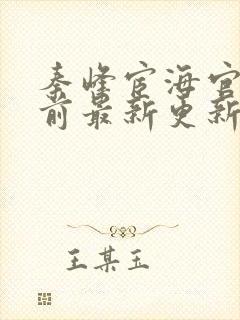 秦峰宦海官
前最新更新
王某玉